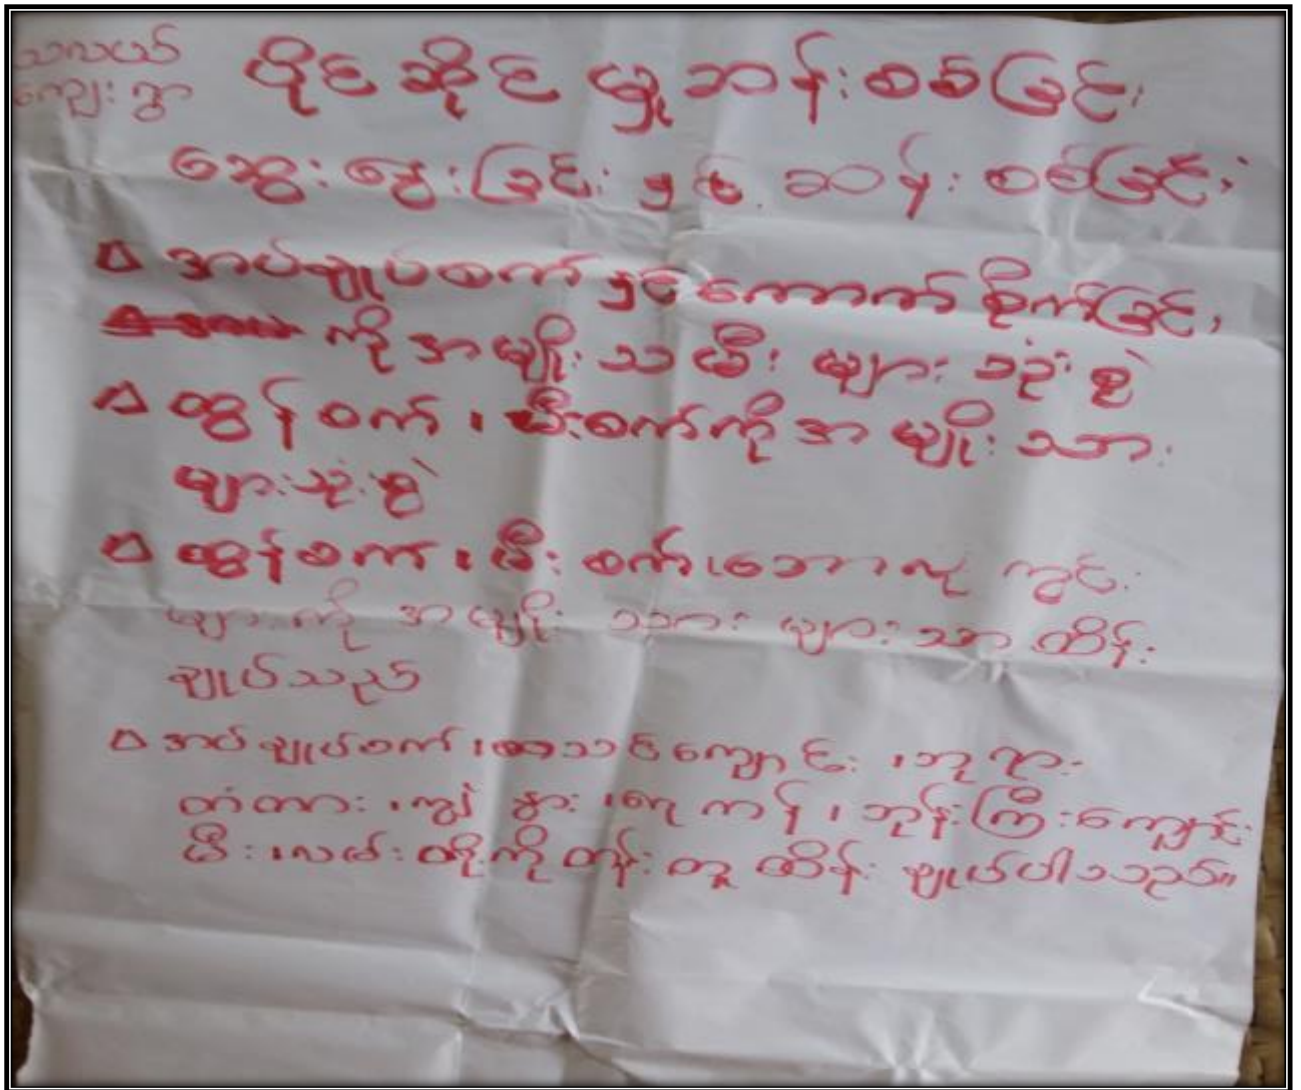 သလယ်
ကျေးရွာ
ပိုင်ဆိုင်မှုဆန်းစစ်ခြင်း
ဆွေးနွေးခြင်းနှင့် ဆန်းစစ်ခြင်း
အပ်ချုပ်စက်နှင့်ကောက်စိုက်ခြင်း
ကိုအမျိုးသမီးများသုံးစွဲ
ထွန်စက်၊ မီးစက်ကိုအမျိုးသား
များသုံးစွဲ
ထွန်စက်၊ မီးစက်၊ဘောလုံကွင်း
များကိုအမျိုးသားများသာထိန်း
ချုပ်သည်
အပ်ချုပ်စက်၊စာသင်ကျောင်း၊ဘုရား
တံတား၊ကျွဲနွား၊ရေကန်၊ဘုန်းကြီးကျောင်း
မီး၊လမ်းတို့ကိုတန်းတူထိန်းချုပ်ပါသည်။